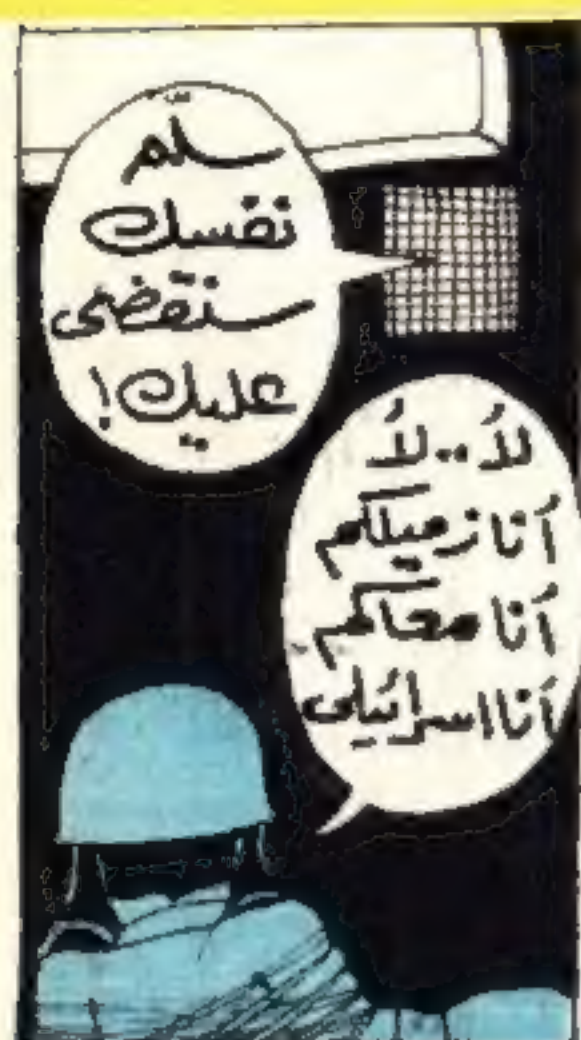 سلّم
نفسك
سنقضى
عليك!
لأ..لأ
أنا زميلكم
أنا معاكم
أنا اسرائيلى